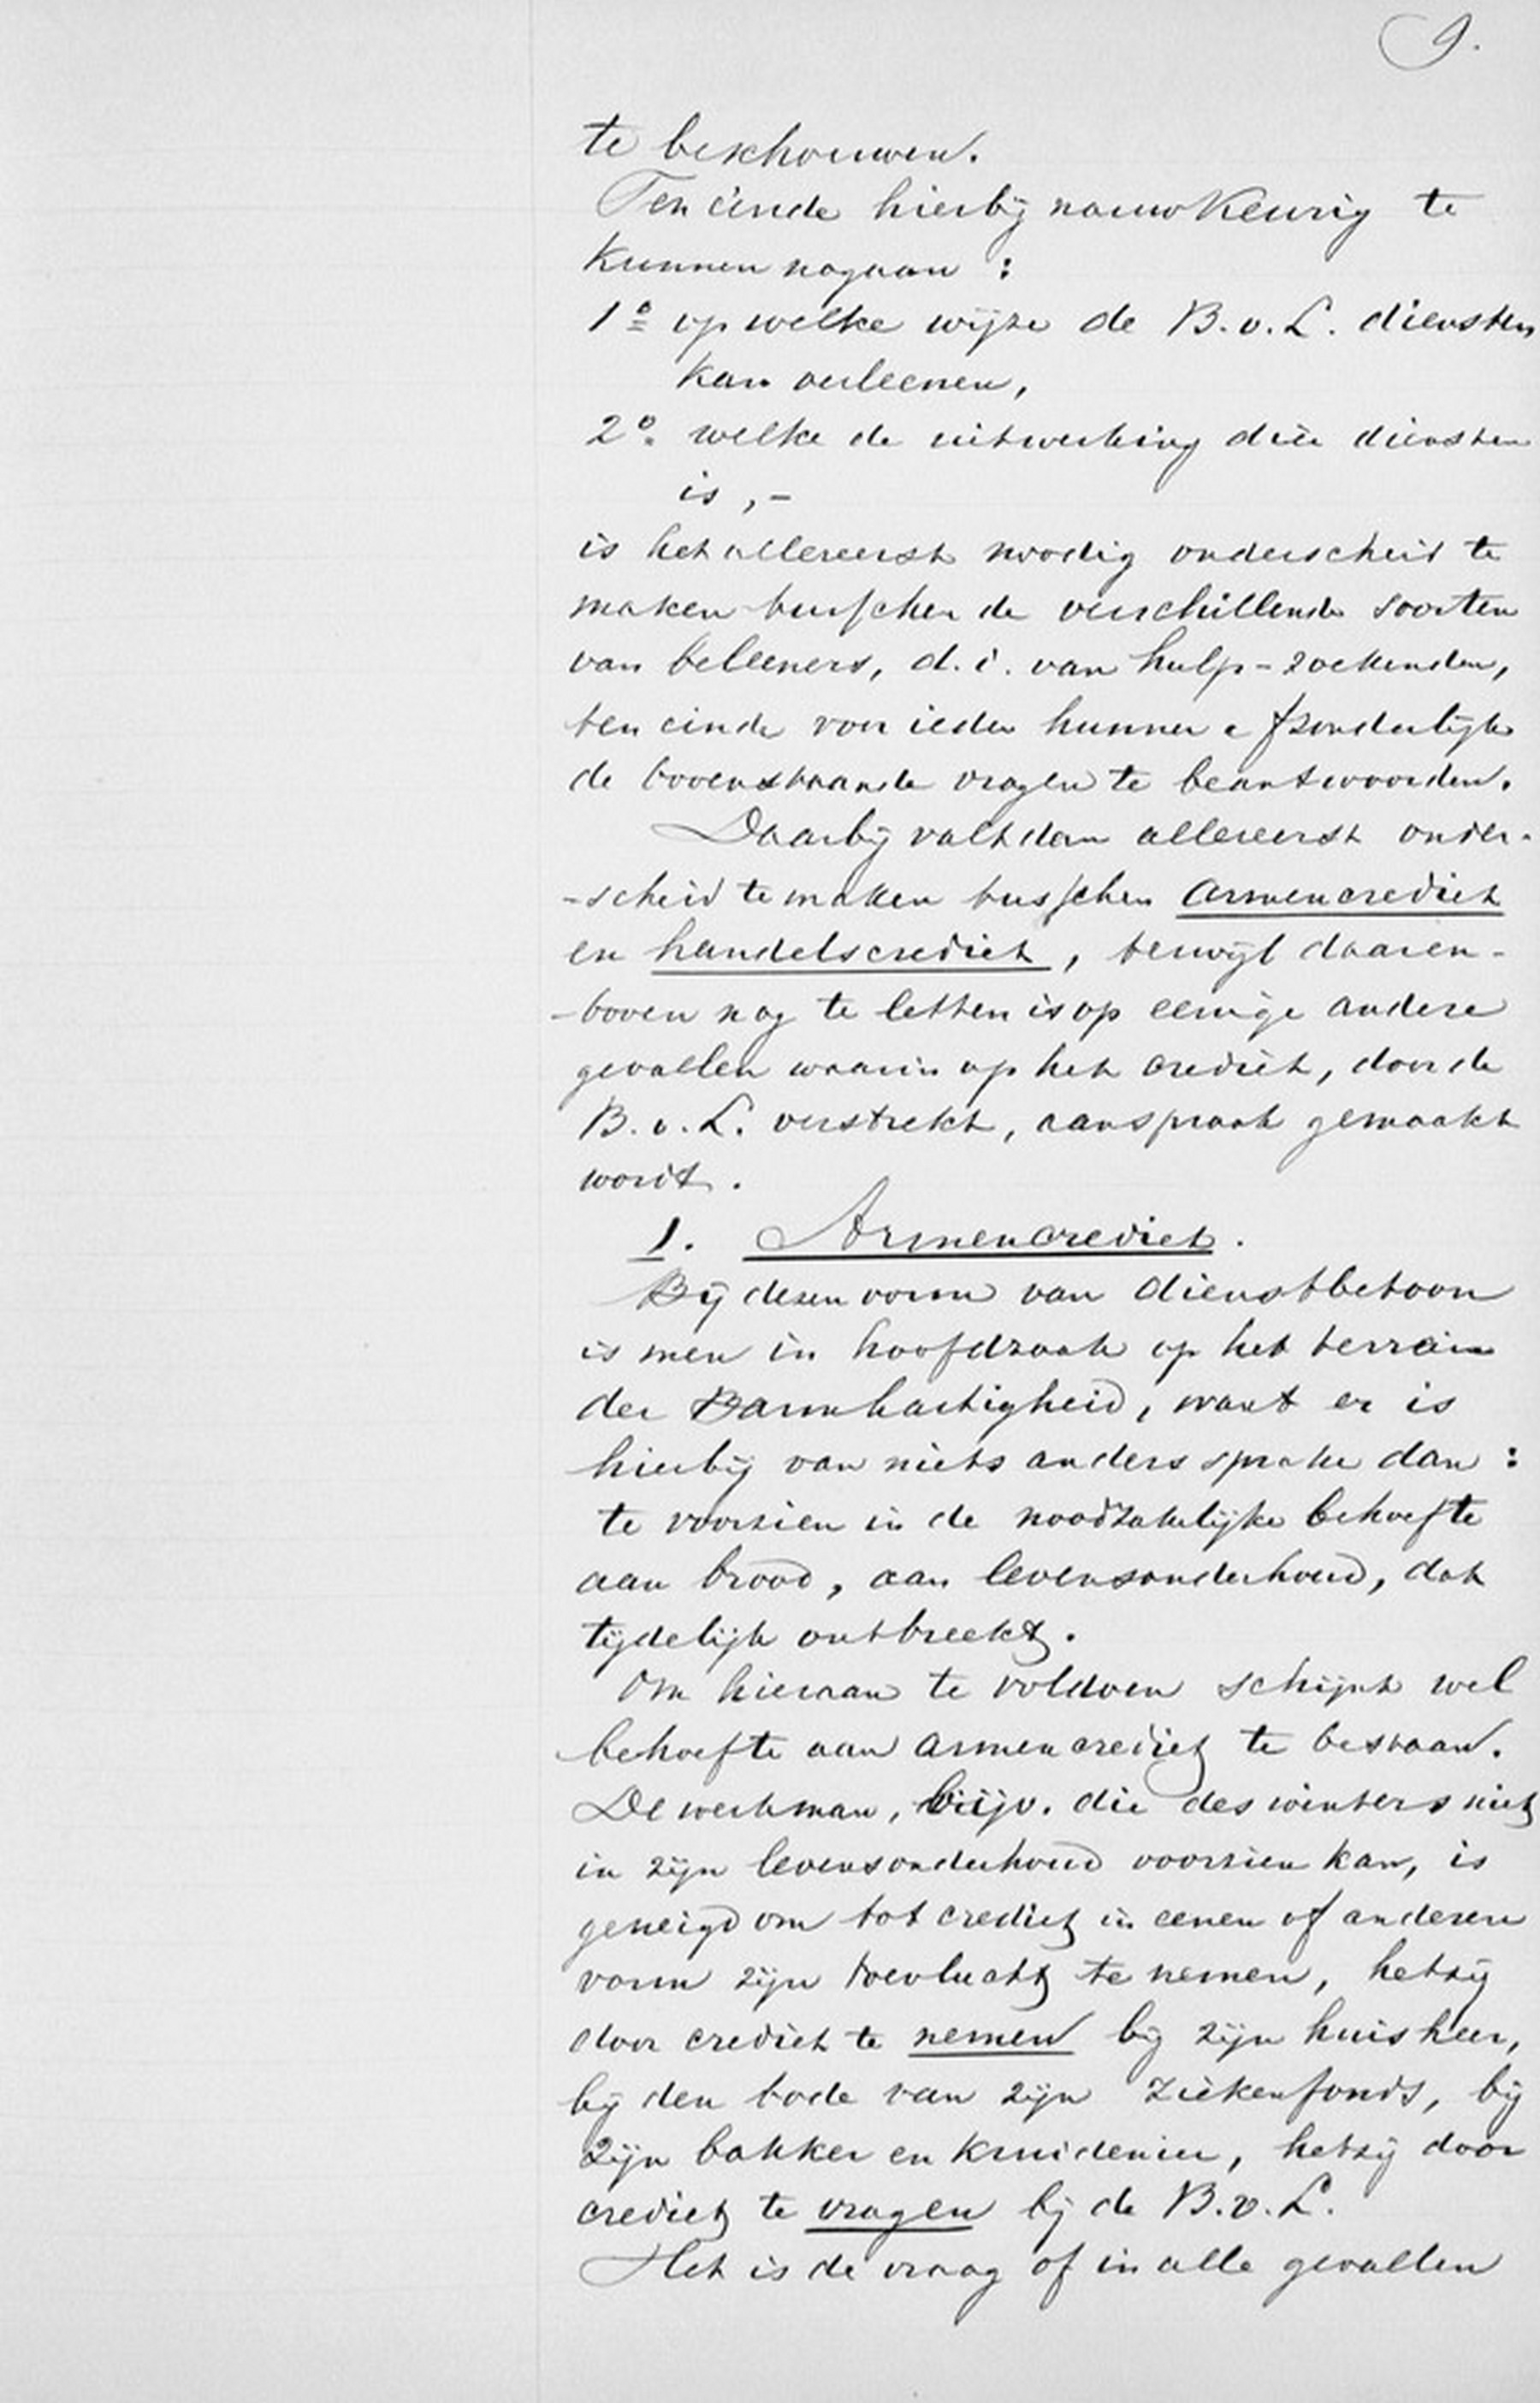 9.
te beschouwen.
Ten einde hierbij nauwkeurig te
kunnen nagaan :
1o op welke wijze de B.v.L. diensten
kan verleenen,
2o. welke de uitwerking dier diensten
is ,-
is het allereerst noodig onderscheid te
maken tusschen de verschillende soorten
van beleeners, d.i. van hulp-zoekenden,
ten einde voor ieder hunner afzonderlijk
de bovenstaande vragen te beantwoorden.
Daarbij valt dan allereerst onder-
-scheid te maken tusschen armencrediet
en handelscrediet, terwijl daaren-
-boven nog te letten is op eenige andere
gevallen waarin op het crediet, door de
B.v.L. verstrekt, aanspraak gemaakt
wordt.
1. Armencrediet.
Bij dezen vorm van dienstbetoon
is men in hoofdzaak op het terrein
der Barmhartigheid, want er is
hierbij van niets anders sprake dan :
te voorzien in de noodzakelijke behoefte
aan brood, aan levensonderhoud, dat
tijdelijk ontbreekt.
Om hieraan te voldoen schijnt wel
behoefte aan armencrediet te bestaan.
De werkman, bijv. die des winters niet
in zijn levensonderhoud voorzien kan, is
geneigd om tot crediet in eenen of anderen
vorm zijn toevlucht te nemen, hetzij
door crediet te nemen bij zijn huisheer,
bij den bode van zijn ziekenfonds, bij
zijn bakker en kruidenier, hetzij door
crediet te vragen bij de B.v.L.
Het is de vraag of in alle gevallen